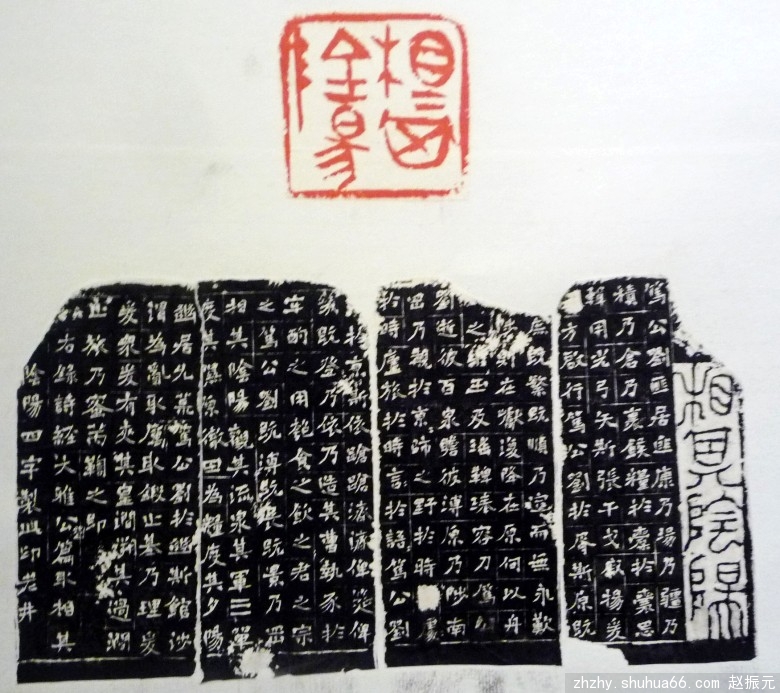 相其陰陽
相其陰陽
篤公劉匪居匪康乃場乃疆乃
積乃倉乃裹餱糧於橐於囊思
輯用光弓矢斯張干戈戚揚爰
方啟行篤公劉於胥斯原既
庶既繁既順乃宣而無永歎
陟則在巘復降在原何以舟
之維玉及瑤鞞琫容刀篤公
劉逝彼百泉瞻彼溥原乃陟南
岡乃覯於京師之野於時處
於時廬旅於時言於語篤公劉
於京斯依蹌蹌濟濟俾筵俾
既登乃依乃造其曹執豕於
牢酌之用匏食之飲之君之宗
之篤公劉既溥既長既景乃岡
相其陰陽觀其流泉其軍三單
度其隰原徹田為糧度其夕陽
豳居允荒篤公劉於豳斯館涉
渭為亂取厲取鍛止基乃理爰
眾爰有夾其皇澗溯其過澗
止旅乃密芮鞫之即
右錄詩經大雅公篇取相其
陰陽四字製此印老井
zhzhy.shuhua66.com 赵振元